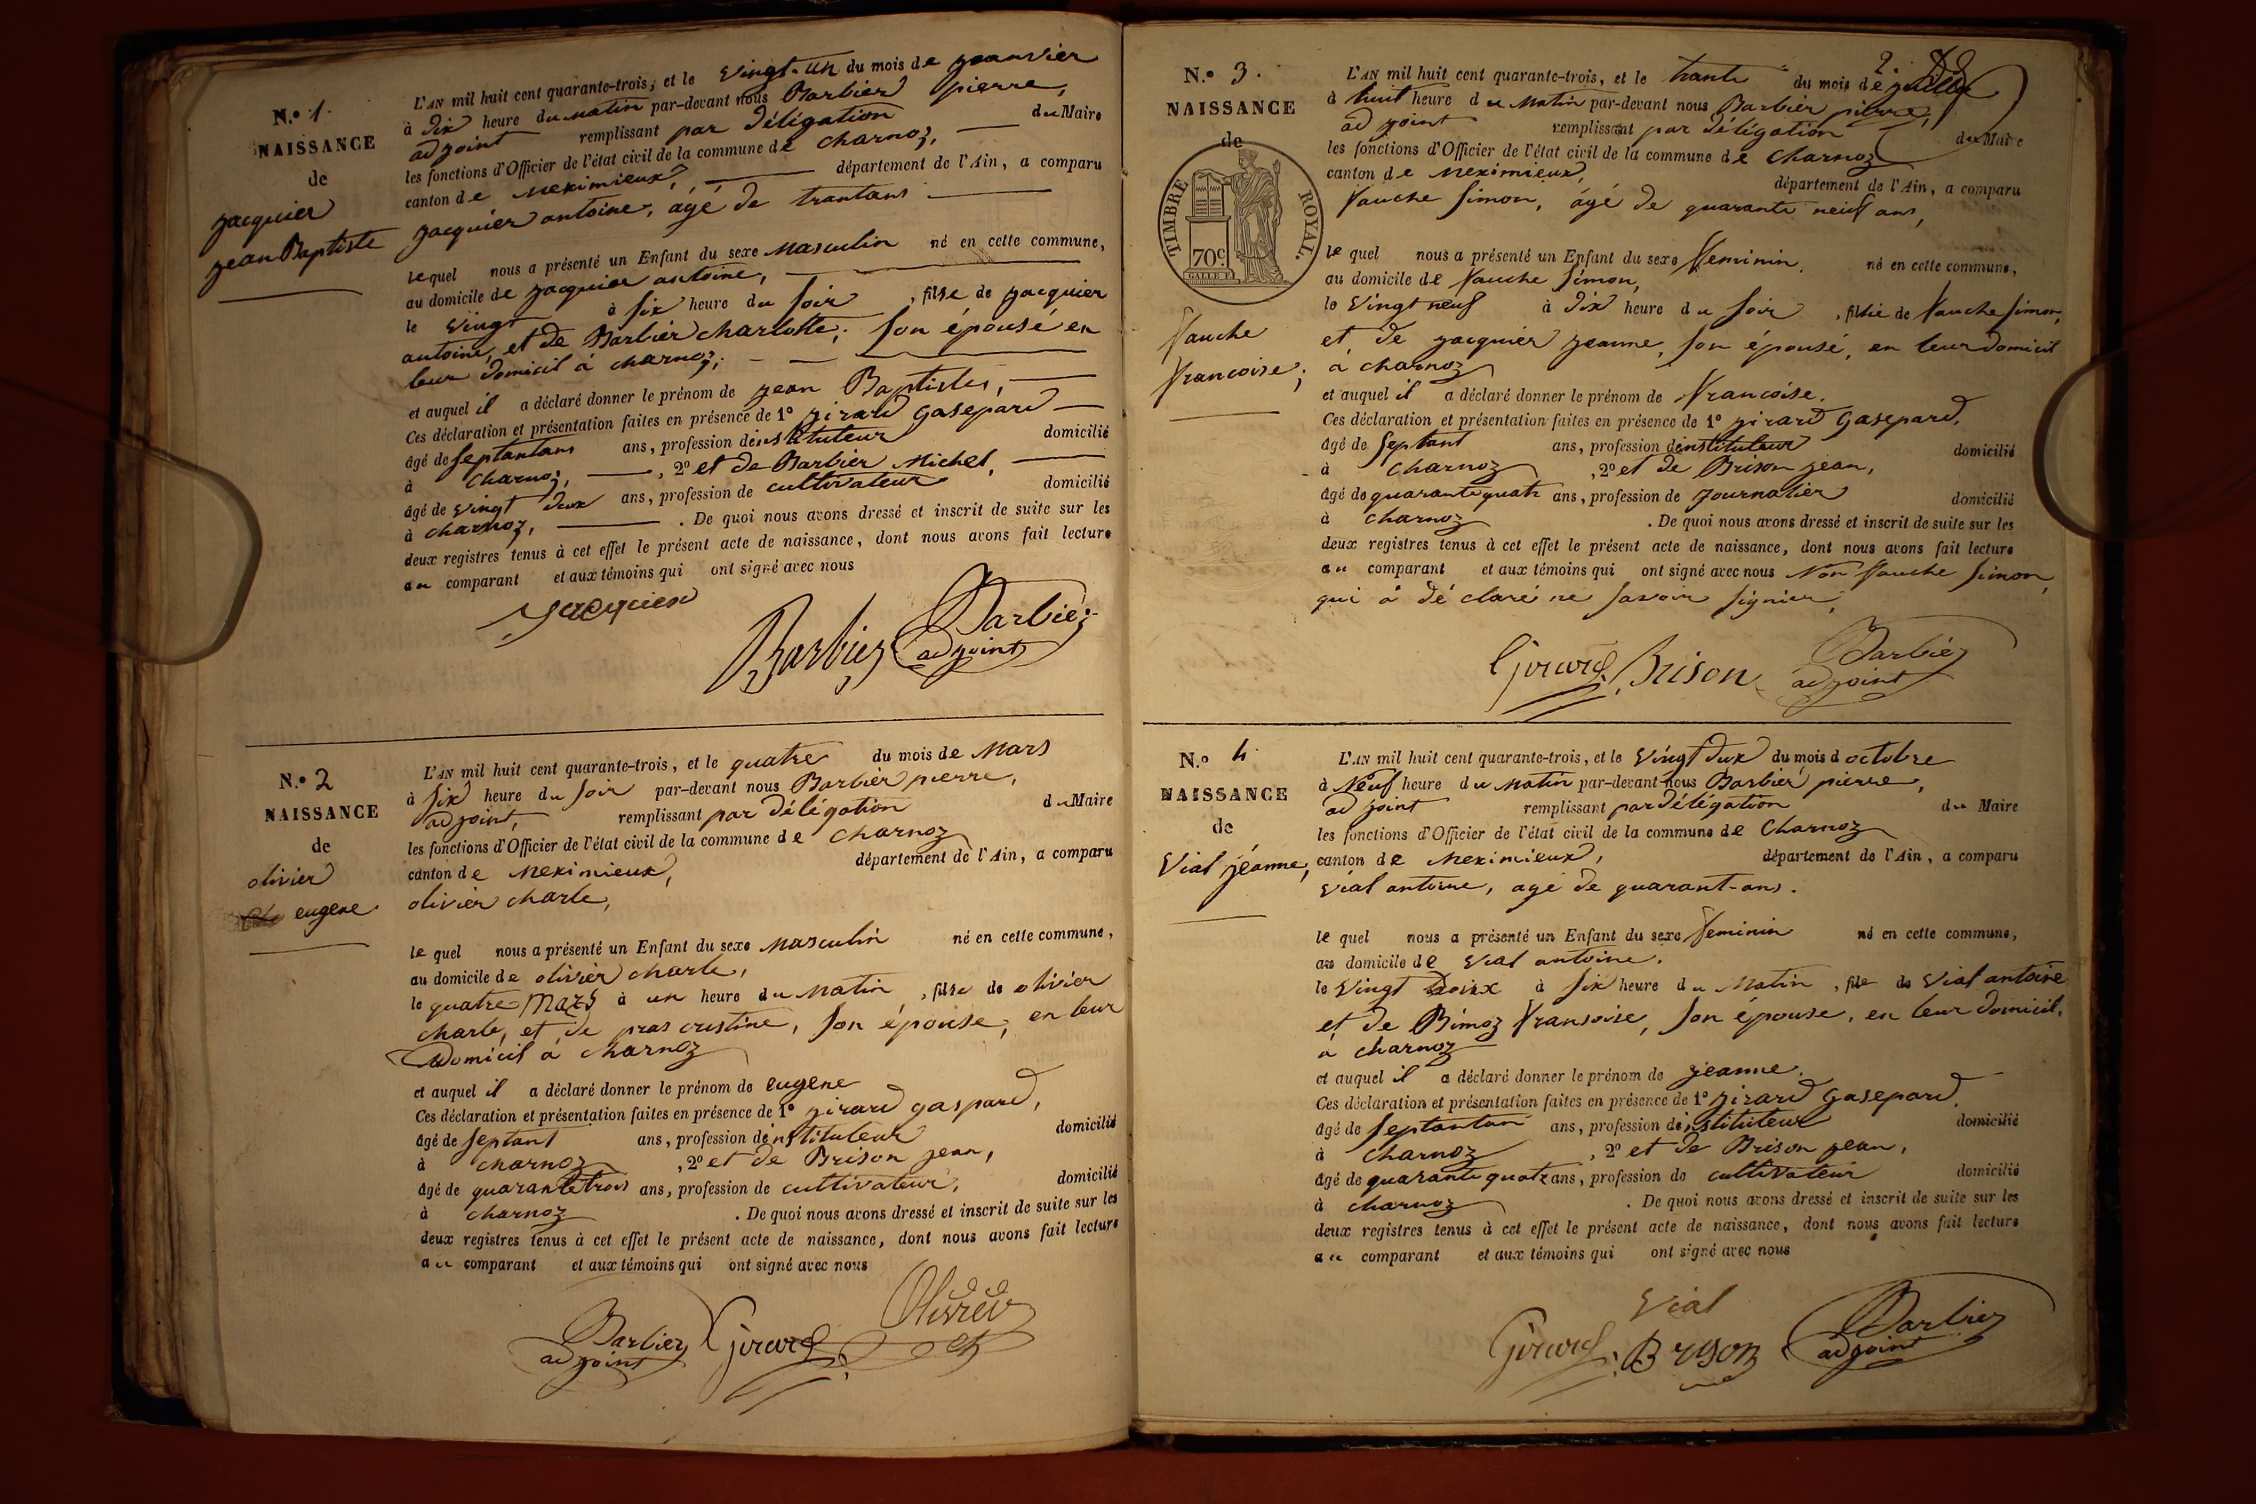 N.o 1.
NAISSANCE
de
jacquier
jean Baptiste
L'AN mil huit cent quarante-trois, et le vingt-un du mois de janvier
à dix heure du matin par-devant nous Barbier pierre,
adjoint remplissant par déligation du Maire
les fonctions d'Officier de l'état civil de la commune de charnoz,
canton de meximieux, département de l'Ain, a comparu
jacquier antoine, âgé de trantans
lequel nous a présenté un Enfant du sexe masculin né en cette commune,
au domicile de jacquier antoine,
le vingt à six heure du soir, fils de jacquier
antoine, et de Barbier charlotte, son épousé en
leur domicil à charnoz;
et auquel il a déclaré donner le prénom de jean Baptiste,
Ces déclaration et présentation faites en présence de 1o girard gasepard
âgé de septantans ans, profession d'instituteur domicilié
à charnoz, 2o et de Barbier Michel,
âgé de vingt deux ans, profession de cultivateur domicilié
à charnoz, . De quoi nous avons dressé et inscrit de suite sur les
deux registres tenus à cet effet le présent acte de naissance, dont nous avons fait lecture
au comparant et aux témoins qui ont signé avec nous
Jacquier
Barbier Barbier
adjoint
N.o 2
NAISSANCE
de
olivier
eugene
L'AN mil huit cent quarante-trois, et le quatre du mois de Mars
à six heure du soir par-devant nous Barbier pierre,
adjoint, remplissant par délégation du Maire
les fonctions d'Officier de l'état civil de la commune de charnoz
canton de meximieux, département de l'Ain, a comparu
olivier charle,
lequel nous a présenté un Enfant du sexe masculin né en cette commune,
au domicile de olivier charle,
le quatre mars à un heure du matin, fils de olivier
charle, et de pras cristine, son épouse, en leur
domicil à charnoz
et auquel il a déclaré donner le prénom de eugene
Ces déclaration et présentation faites en présence de 1o girard gaspard,
âgé de septant ans, profession d'instituteur domicilié
à charnoz, 2o et de Brison jean,
âgé de quarante trois ans, profession de cultivateur, domicilié
à charnoz . De quoi nous avons dressé et inscrit de suite sur les
deux registres tenus à cet effet le présent acte de naissance, dont nous avons fait lecture
au comparant et aux témoins qui ont signé avec nous
Olivier
Barbier Girard
adjoint
2.
N.o 3.
NAISSANCE
de
TIMBRE ROYAL.
70c.
vauche
francoise;
L'AN mil huit cent quarante-trois, et le trante du mois de juillet
à huit heure du matin par-devant nous Barbier pierre,
adjoint remplissant par déligation du Maire
les fonctions d'Officier de l'état civil de la commune de charnoz
canton de meximieux, département de l'Ain, a comparu
vauche simon, âgé de quarante neuf ans,
lequel nous a présenté un Enfant du sexe feminin, né en cette commune,
au domicile de vauche simon,
le vingt neuf à dix heure du soir, fille de vauche simon,
et de jacquier jeanne, son épousé, en leur domicil
à charnoz
et auquel il a déclaré donner le prénom de francoise.
Ces déclaration et présentation faites en présence de 1o girard gasepard,
âgé de septant ans, profession d'instituteur domicilié
à charnoz, 2o et de Brison jean,
âgé de quarante quatr ans, profession de journalier domicilié
à charnoz . De quoi nous avons dressé et inscrit de suite sur les
deux registres tenus à cet effet le présent acte de naissance, dont nous avons fait lecture
au comparant et aux témoins qui ont signé avec nous Non vauche simon,
qui à dé claré ne savoir signier,
Girard Brison Barbier
adjoint
N.o 4
NAISSANCE
de
Vial jéanne,
L'AN mil huit cent quarante-trois, et le vingt dux du mois d octobre
à Neuf heure du matin par-devant nous Barbier pierre,
adjoint remplissant par délégation du Maire
les fonctions d'Officier de l'état civil de la commune de Charnoz
canton de meximieux, département de l'Ain, a comparu
vial antoine, agé de quarant-ans.
lequel nous a présenté un Enfant du sexe feminin né en cette commune,
au domicile de vial antoine,
le vingt à six heure du matin, fille de vial antoine
et de Bimoz fransoise, son épouse, en leur domicil,
à charnoz
et auquel il a déclaré donner le prénom de jeanne.
Ces déclaration et présentation faites en présence de 1o girard gasepard,
âgé de septantan ans, profession d'instituteur domicilié
à charnoz, 2o et de Brison jean,
âgé de quarante quatr ans, profession de cultivateur domicilié
à charnoz . De quoi nous avons dressé et inscrit de suite sur les
deux registres tenus à cet effet le présent acte de naissance, dont nous avons fait lecture
au comparant et aux témoins qui ont signé avec nous
Vial
Girard Brison Barbier
adjoint